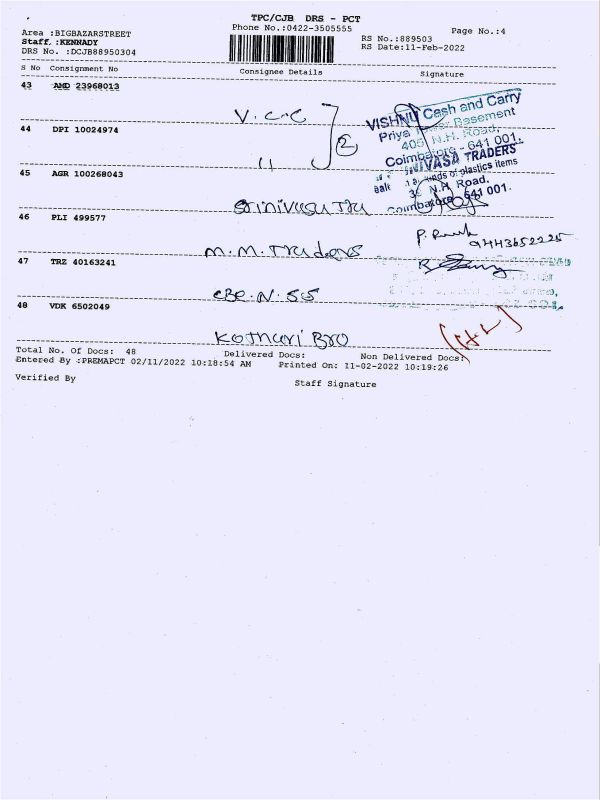 TPC/CJB DRS - PCT
Phone No.:0422-3505555
Page No.:4
Area :BIGBAZARSTREET
Staff, :KENNADY
DRS No. :DCJB88950304
RS No.:889503
RS Date:11-Feb-2022
S No Consignment No Consignee Details Signature
43 AMD 23968013
V.C-C
2
VISHNU Cash and Carry
Priya Tower Basement
405 N.H. Road,
Coimbatore - 641 001.
44 DPI 10024974
"
45 AGR 100268043
VASA TRADERS
kinds of plastics items
N.H Road.
Coimbatore 641 001.
Srinivasu Tra
46 PLI 499577
9443652225
M.M. Traders
47 TRZ 40163241
CBE.N.55
48 VDK 6502049
Kothari Bro
Total No. Of Docs: 48 Delivered Docs: Non Delivered Docs:
Entered By :PREMAPCT 02/11/2022 10:18:54 AM Printed On: 11-02-2022 10:19:26
Verified By
Staff Signature